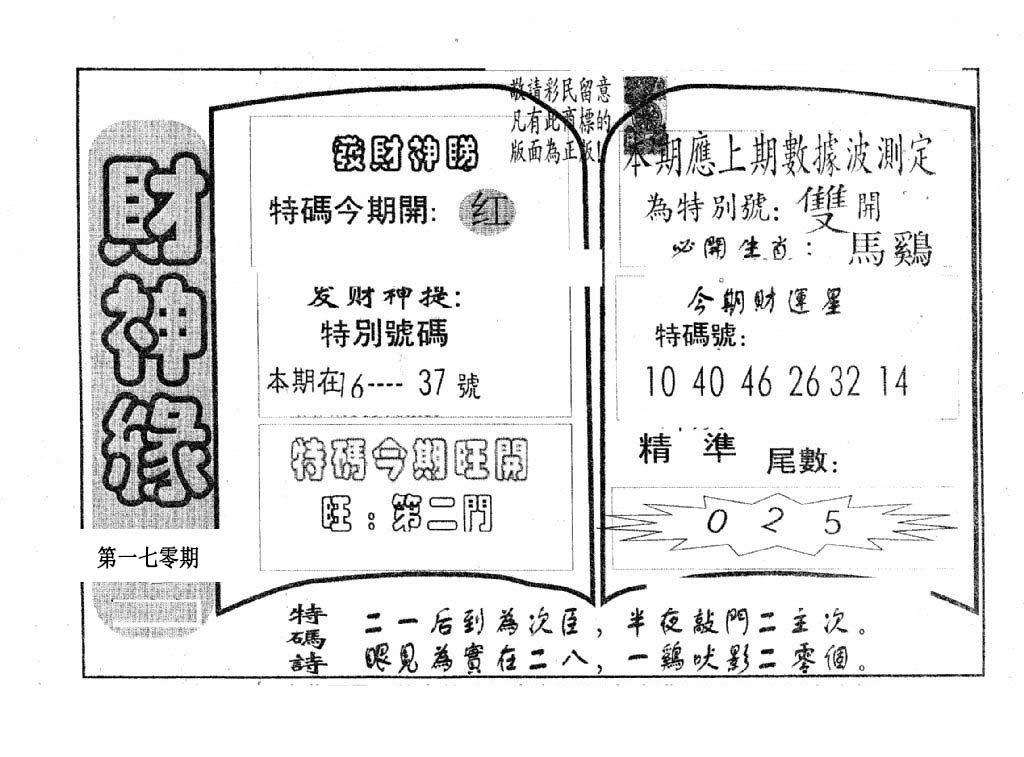 財神緣
第一七零期
敬請彩民留意
凡有此商標的
版面為正版!
發財神賜
特碼今期開: 红
发财神提:
特別號碼
本期在16----37號
特碼今期旺開
旺:第二門
本期應上期數據波測定
為特別號:雙開
必開生肖:馬鷄
今期財運星
特碼號:
10 40 46 26 32 14
精準 尾數:
0 2 5
特碼詩
二一后到為次臣,半夜敲門二主次。
眼見為實在二八,一鷄吠影二零個。